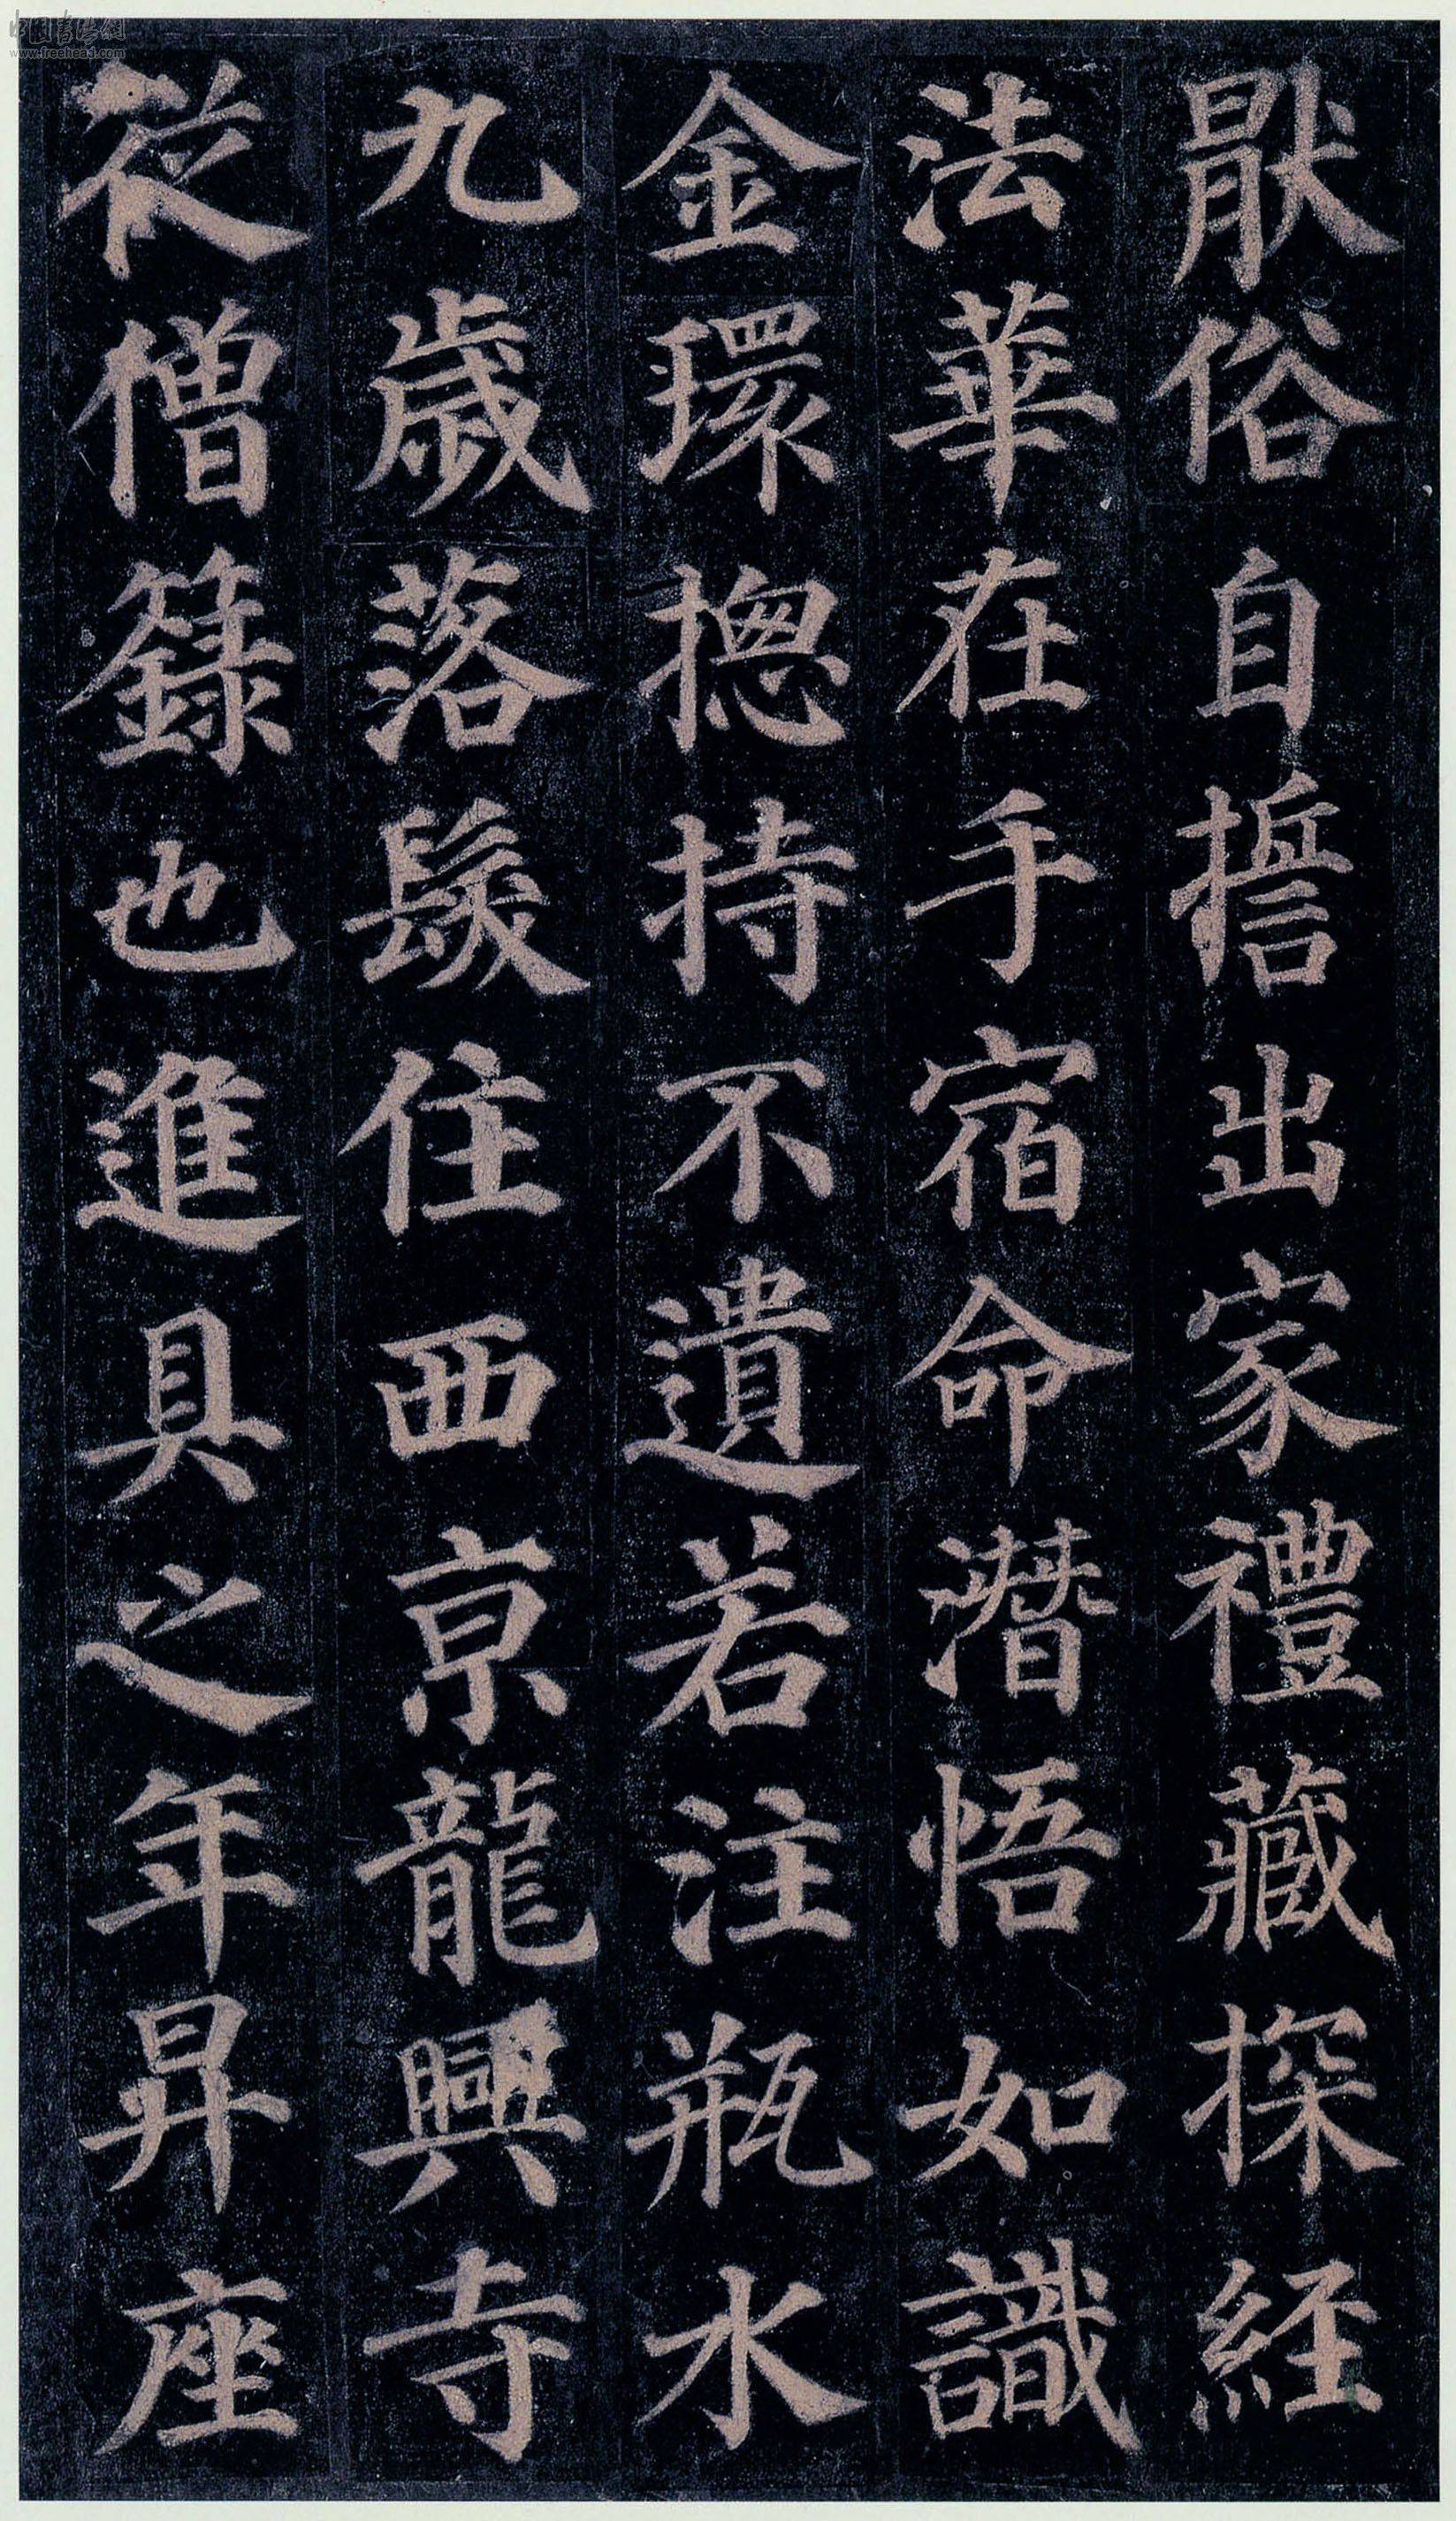 猒俗自誓出家禮藏探經
法華在手宿命潛悟如識
金環揔持不遺若注瓶水
九歲落髮住西京龍興寺
從僧籙也進具之年昇座
中国书法网
www.freehead.com